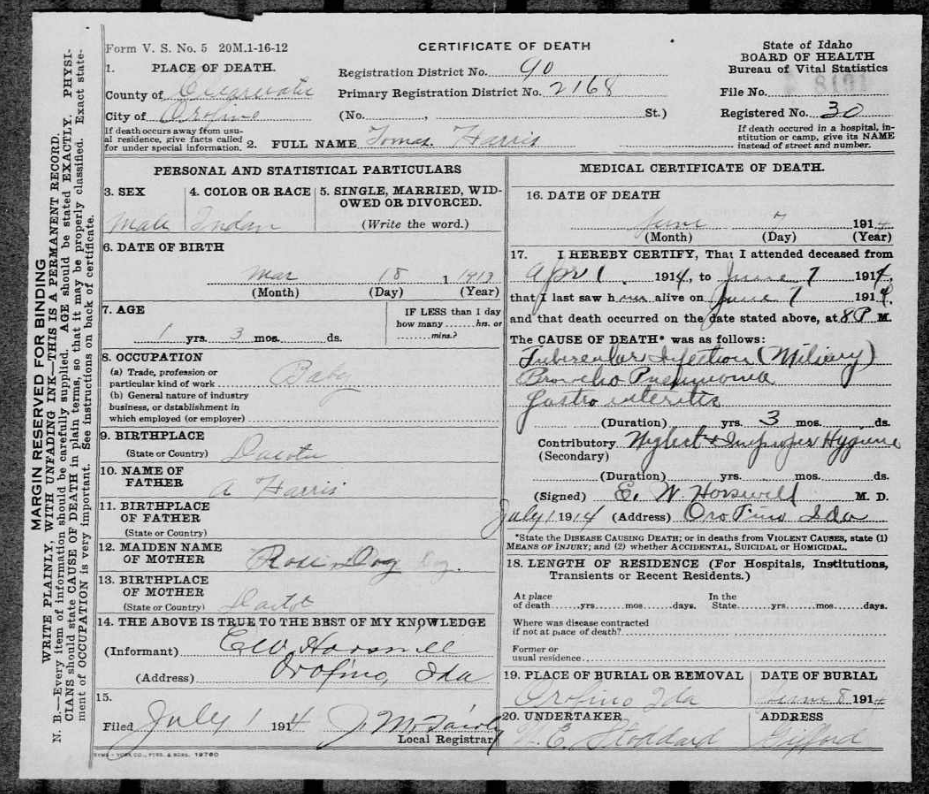 Form V. S. No. 5 20M.1-16-12
CERTIFICATE OF DEATH
State of Idaho
BOARD OF HEALTH
Bureau of Vital Statistics
1. PLACE OF DEATH.
County of Clearwater
City of Orofino
If death occurs away from usu-
al residence, give facts called
for under special information.
Registration District No. 90
Primary Registration District No. 2168
(No. , St.)
File No.
Registered No. 30
If death occurred in a hospital, in-
stitution or camp, give its NAME
instead of street and number.
2. FULL NAME Tomas Harris
PERSONAL AND STATISTICAL PARTICULARS
3. SEX
Male
4. COLOR OR RACE
Indan
5. SINGLE, MARRIED, WID-
OWED OR DIVORCED.
(Write the word.)
6. DATE OF BIRTH
Mar 18 1 1913
(Month) (Day) (Year)
7. AGE
1 yrs. 3 mos. ds.
IF LESS than 1 day
how many ...... hrs. or
...... mins.?
8. OCCUPATION
(a) Trade, profession or
particular kind of work Baby
(b) General nature of industry
business, or dstablishment in
which employed (or employer)
9. BIRTHPLACE
(State or Country) Dacota
10. NAME OF
FATHER A Harris
11. BIRTHPLACE
OF FATHER
(State or Country)
12. MAIDEN NAME
OF MOTHER Rosie Dog
13. BIRTHPLACE
OF MOTHER
(State or Country)
14. THE ABOVE IS TRUE TO THE BEST OF MY KNOWLEDGE
(Informant) E W Horswill
(Address) Orofino, Ida
15.
Filed July 1 1914 J. M.
Local Registrar
MEDICAL CERTIFICATE OF DEATH.
16. DATE OF DEATH
June 7 1914
(Month) (Day) (Year)
17. I HEREBY CERTIFY, That I attended deceased from
Apr 1. 1914, to June 7 1914.
that I last saw h alive on June 7 1914.
and that death occurred on the date stated above, at 8 P M.
The CAUSE OF DEATH* was as follows:
Tubercular Infection (Miliary)
Broncho Pneumonia
Gastro interites
(Duration) yrs. 3 mos. ds.
Contributory Neglect & Improper Hygiene
(Secondary)
(Duration) yrs. mos. ds.
(Signed) E. W. Horswill M. D.
July 1 1914 (Address) Orofino Ida
*State the DISEASE CAUSING DEATH; or in deaths from VIOLENT CAUSES, state (1)
MEANS OF INJURY; and (2) whether ACCIDENTAL, SUICIDAL or HOMICIDAL.
18. LENGTH OF RESIDENCE (For Hospitals, Institutions,
Transients or Recent Residents.)
At place
of death......yrs......mos......days.
In the
State......yrs......mos......days.
Where was disease contracted
if not at place of death?
Former or
usual residence
19. PLACE OF BURIAL OR REMOVAL
Orofino Ida
DATE OF BURIAL
June 8 1914
20. UNDERTAKER
W. E. Stoddard
ADDRESS
Gifford
MARGIN RESERVED FOR BINDING
WRITE PLAINLY, WITH UNFADING INK—THIS IS A PERMANENT RECORD.
N. B.—Every item of information should be carefully supplied. AGE should be stated EXACTLY. PHYSI-
CIANS should state CAUSE OF DEATH in plain terms, so that it may be properly classified. Exact state-
ment of OCCUPATION is very important. See instructions on back of certificate.